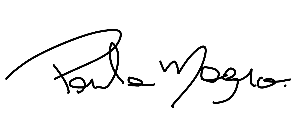 Paula Magra